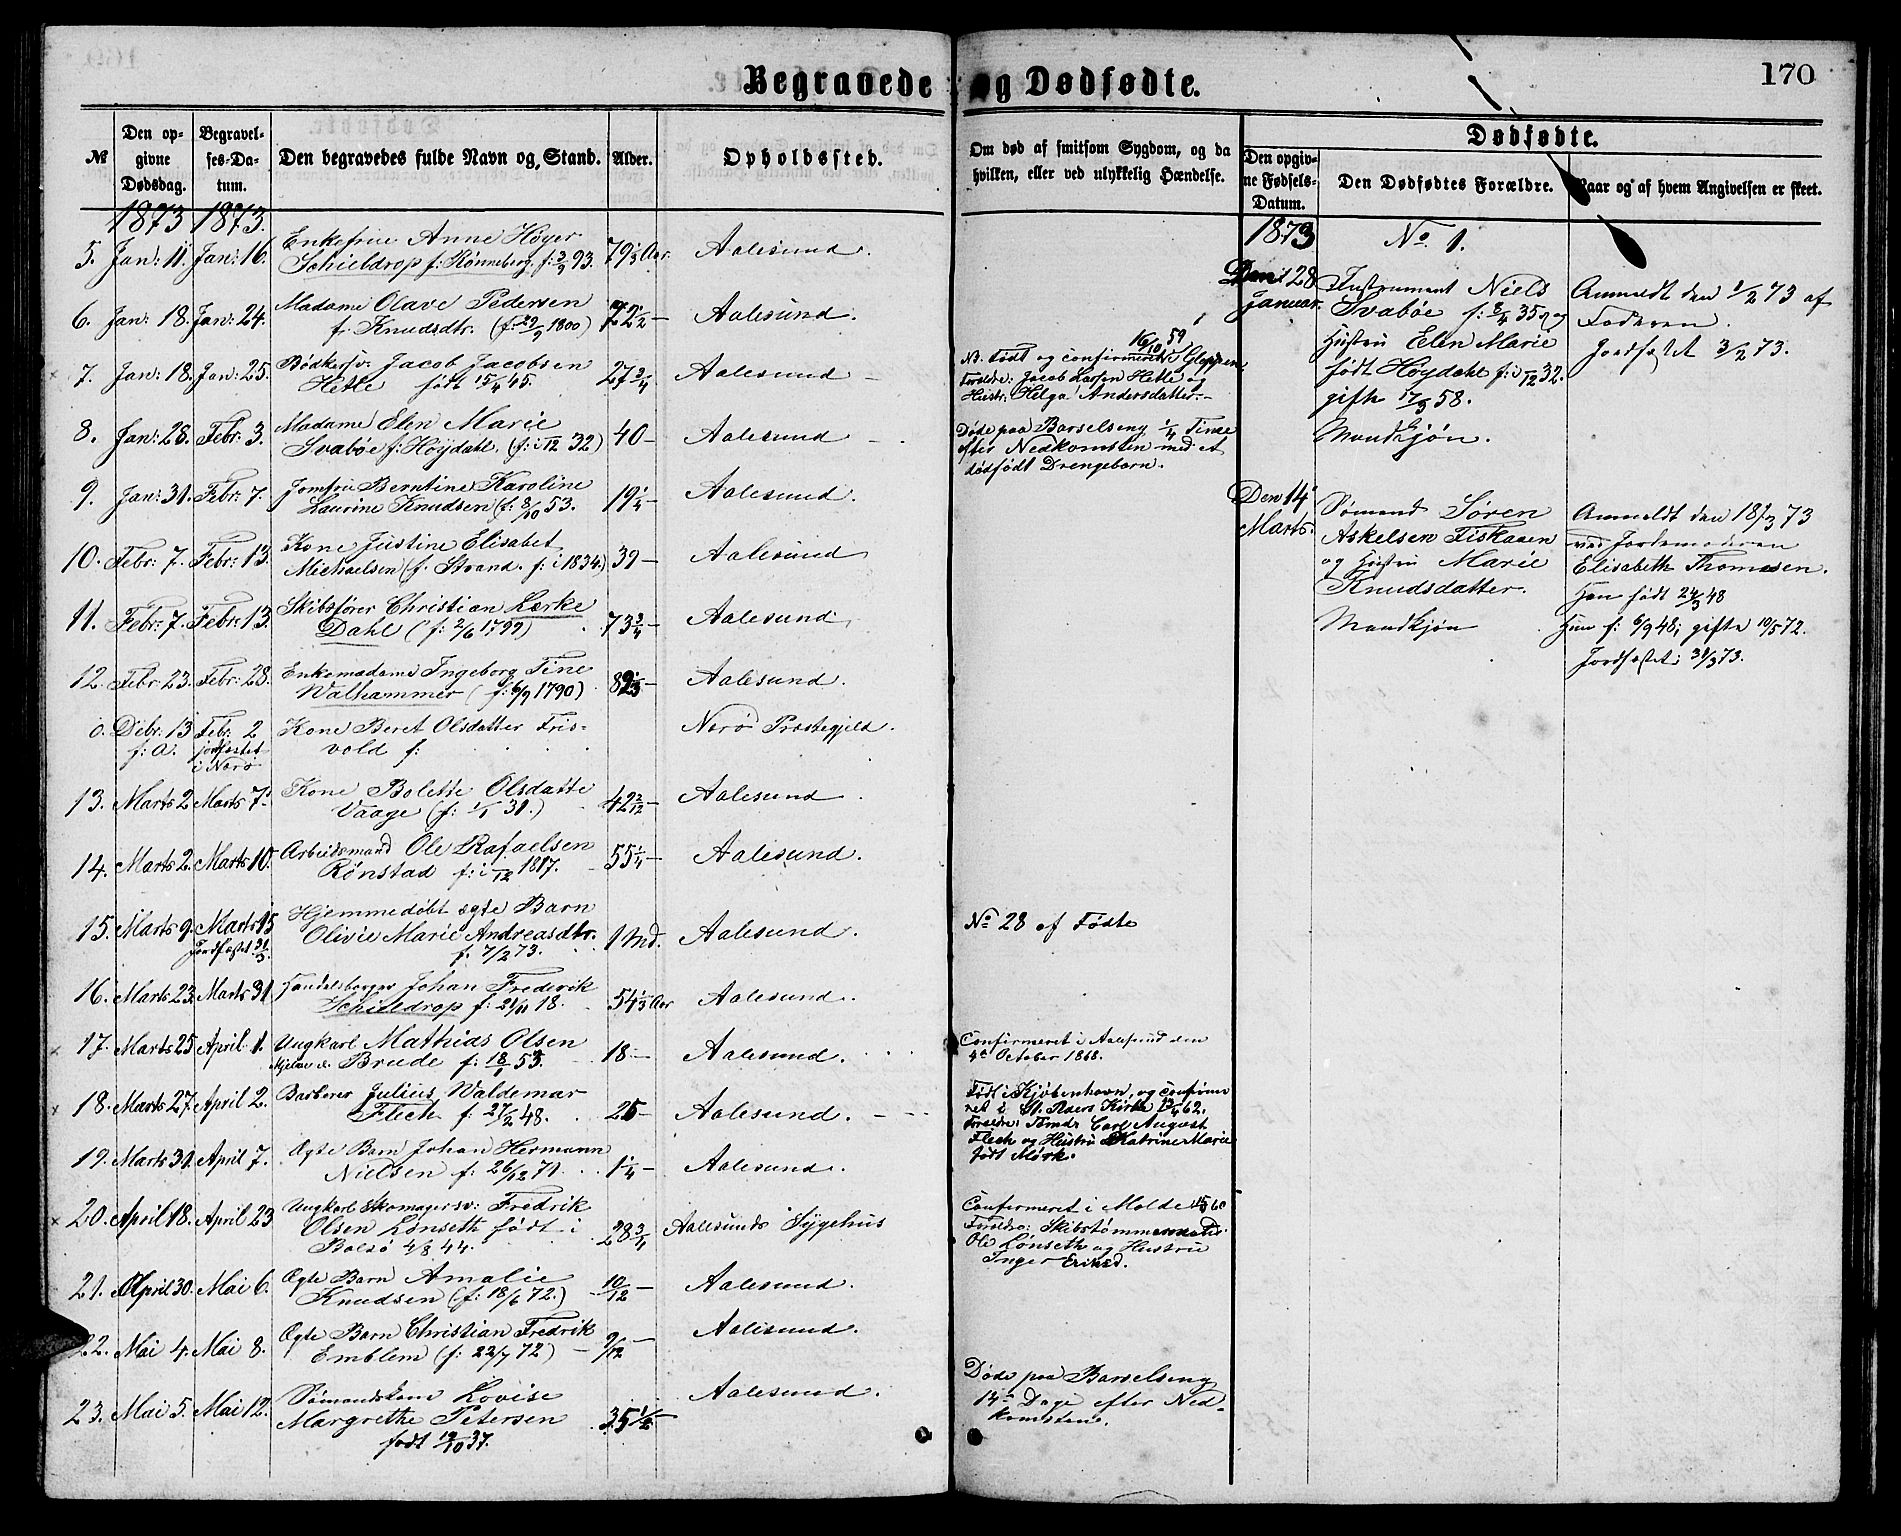 Begravede og Dødfødte.
170
№
Den op-
givne
Dødsdag.
Begravel-
ses-Da-
tum.
Den begravedes fulde Navn og Stand.
Alder.
Opholdssted.
Om død af smitsom Sygdom, og da
hvilken, eller ved ulykkelig Hændelse.
Dødfødte.
Den opgiv-
ne Fødsels-
Datum.
Den Dødfødtes Forældre.
Naar og af hvem Angivelsen er skeet.
1873 1873.
5. Jan: 11. Jan: 16. Enkefrue Anne Høyer
Schieldrop f: Rønneberg. f: 2/9 93. 79 1/3 Aar Aalesund.
6. Jan: 18. Jan: 24. Madame Olave Pedersen
f. Knudsdtr. (f: 29/9 1800) 72 1/2 – Aalesund.
7. Jan: 18. Jan: 25. Bødkersv. Jacob Jacobsen
Hetle født 15/4 45. 27 3/4 Aalesund –
16/10 59
NB. Født og confirmeret i Gloppen
Foreldre: Jacob Larsen Hetle og
Hustr: Helga Andersdatter. –
8. Jan: 28. Febr: 3. Madame Elen Marie
Svabøe f: Høydahl. (f: i 12 32) 40 – Aalesund
Døde paa Barselseng 1/4 Time
efter Nedkomsten med et
dødfødt Drengebarn.
9. Jan: 31. Febr: 7. Jomfru Berntine Karoline
Laurine Knudsen (f: 8/10 53. 19 1/4 – Aalesund.
10. Febr: 7. Febr: 13. Kone Justine Elisabet
Michaelsen (f. Strand. f: i 1834.) 39 – Aalesund
11. Febr: 7. Febr: 13. Skibsfører Christian Lerke
Dahl (f: 2/6 1799) 73 3/4 – Aalesund,
12. Febr: 23. Febr: 28. Enkemadame Ingeborg Tine
Walhammer (f: 6/9 1790) Aalesund.
o. Debr: 13 Febr: 2 Kone Beret Olsdatter Fris-
f: A. jordfæstet vold f:
i Nerø
Nerø Præstegjeld.
13. Marts 2 Marts 7. Kone Bolette Olsdatte
Vaage (f: 1/1 31.) 42 2/12 – Aalesund
14. Marts 2. Marts 10. Arbeidsmand Ole Rafaelsen
Rønstad f: i 12 1817. 55 1/4 – Aalesund.
15. Marts 9. Marts 15 Hjemmedøbt ægte Barn
Jordfæstet 31/3 Olivie Marie Andreasdtr. 1 Md. Aalesund.
f. 7/2 73.
No 28 af Fødte
16. Marts 23 Marts 31. Handelsborger Johan Frederik
Schieldrop f: 21/11 18. 54 1/3 Aar Aalesund.
17. Marts 25 April 1. Ungkarl Mathias Olsen
Brude f: 18/1 53. 18 – Aalesund.
Confirmeret i Aalesund den
4de October 1868.
18. Marts 27. April 2. Barberer Julius Waldemar
Flech f: 27/2 48. 25 – Aalesund. –
Født i Kjøbenhavn, og confirme
ret i St. Kirke 62.
Foreldre: Carl August
Flech og Hustru Katrine Marie
født Mørk.
19. Marts 31. April 7. Ægte Barn Johan Hermann
Nielsen f: 26/12 71. 1 1/4 – Aalesund.
20. April 18. April 23 Ungkarl Skomagersv: Fredrik
Olsen Lønseth født i
Bolsø 4/8 44. 28 3/4 Aalesunds Sygehus
Confirmeret i Molde 60
Foreldre: Skibstømmermand
Ole Lønseth og Hustrue
Inger Eriksd.
21. April 30. Mai 6. Ægte Barn Amalie
Knudsen (f: 18/6 72.) 10/12 – Aalesund.
22. Mai 4. Mai 8. Ægte Barn Christian Fredrik
Emblem (f: 22/7 72) – 9/12 – Aalesund.
23. Mai 5. Mai 12. Sømandskone Lovise
Margrethe Petersen
født 19/10 37. 35 1/2 – Aalesund.
Døde paa Barselseng
14 Dage efter Ned-
komsten.
1873
No 1.
Den 28
Januar.
Instrument Niels
Svabøe f: 3/4 35 og
Hustru Elen Marie
født Høydahl f: i 12 32.
gifte 17/9 58.
Mandkjøn.
Anmeldt den 1/2 73 af
Faderen.
Jordfæstet 3/2 73.
Den 14
Marts.
Sømand Søren
Askelsen Fiskaaen
og Hustru Marie
Knudsdatter.
Mandkjøn
Anmeldt den 18/3 73
ved Jordemoderen
Elisabeth Thomesen.
Han født 24/3 48
Hun f: 6/9 48; gifte 10/5 72.
Jordfæstet: 31/3 73.